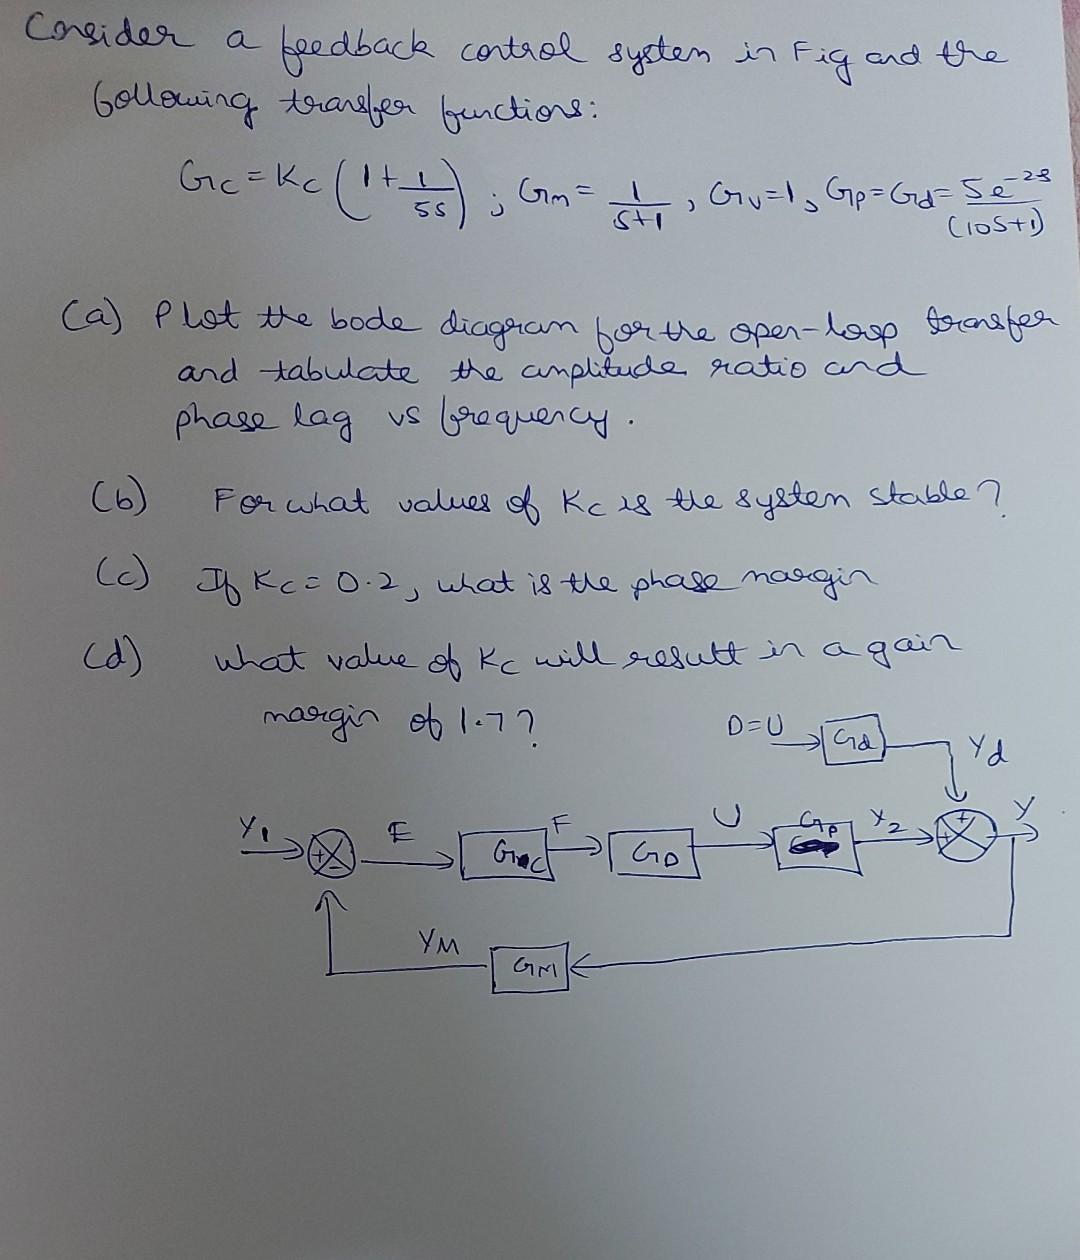 Consider a feedback control system in Fig and the
following transfer functions:
Gc = Kc (1 + 1/5s) ; Gm = 1/s+1 , Gv=1, Gp=Gd= 5e^-2s/(10s+1)
(a) Plot the bode diagram for the open-loop transfer
and tabulate the amplitude ratio and
phase lag vs frequency.
(b) For what values of Kc is the system stable?
(c) If Kc = 0.2, what is the phase margin
(d) what value of Kc will result in a gain
margin of 1.7?
D=U Gd Yd
Y1 + - E Gc F GD U Gp Y2 + + Y
YM GM